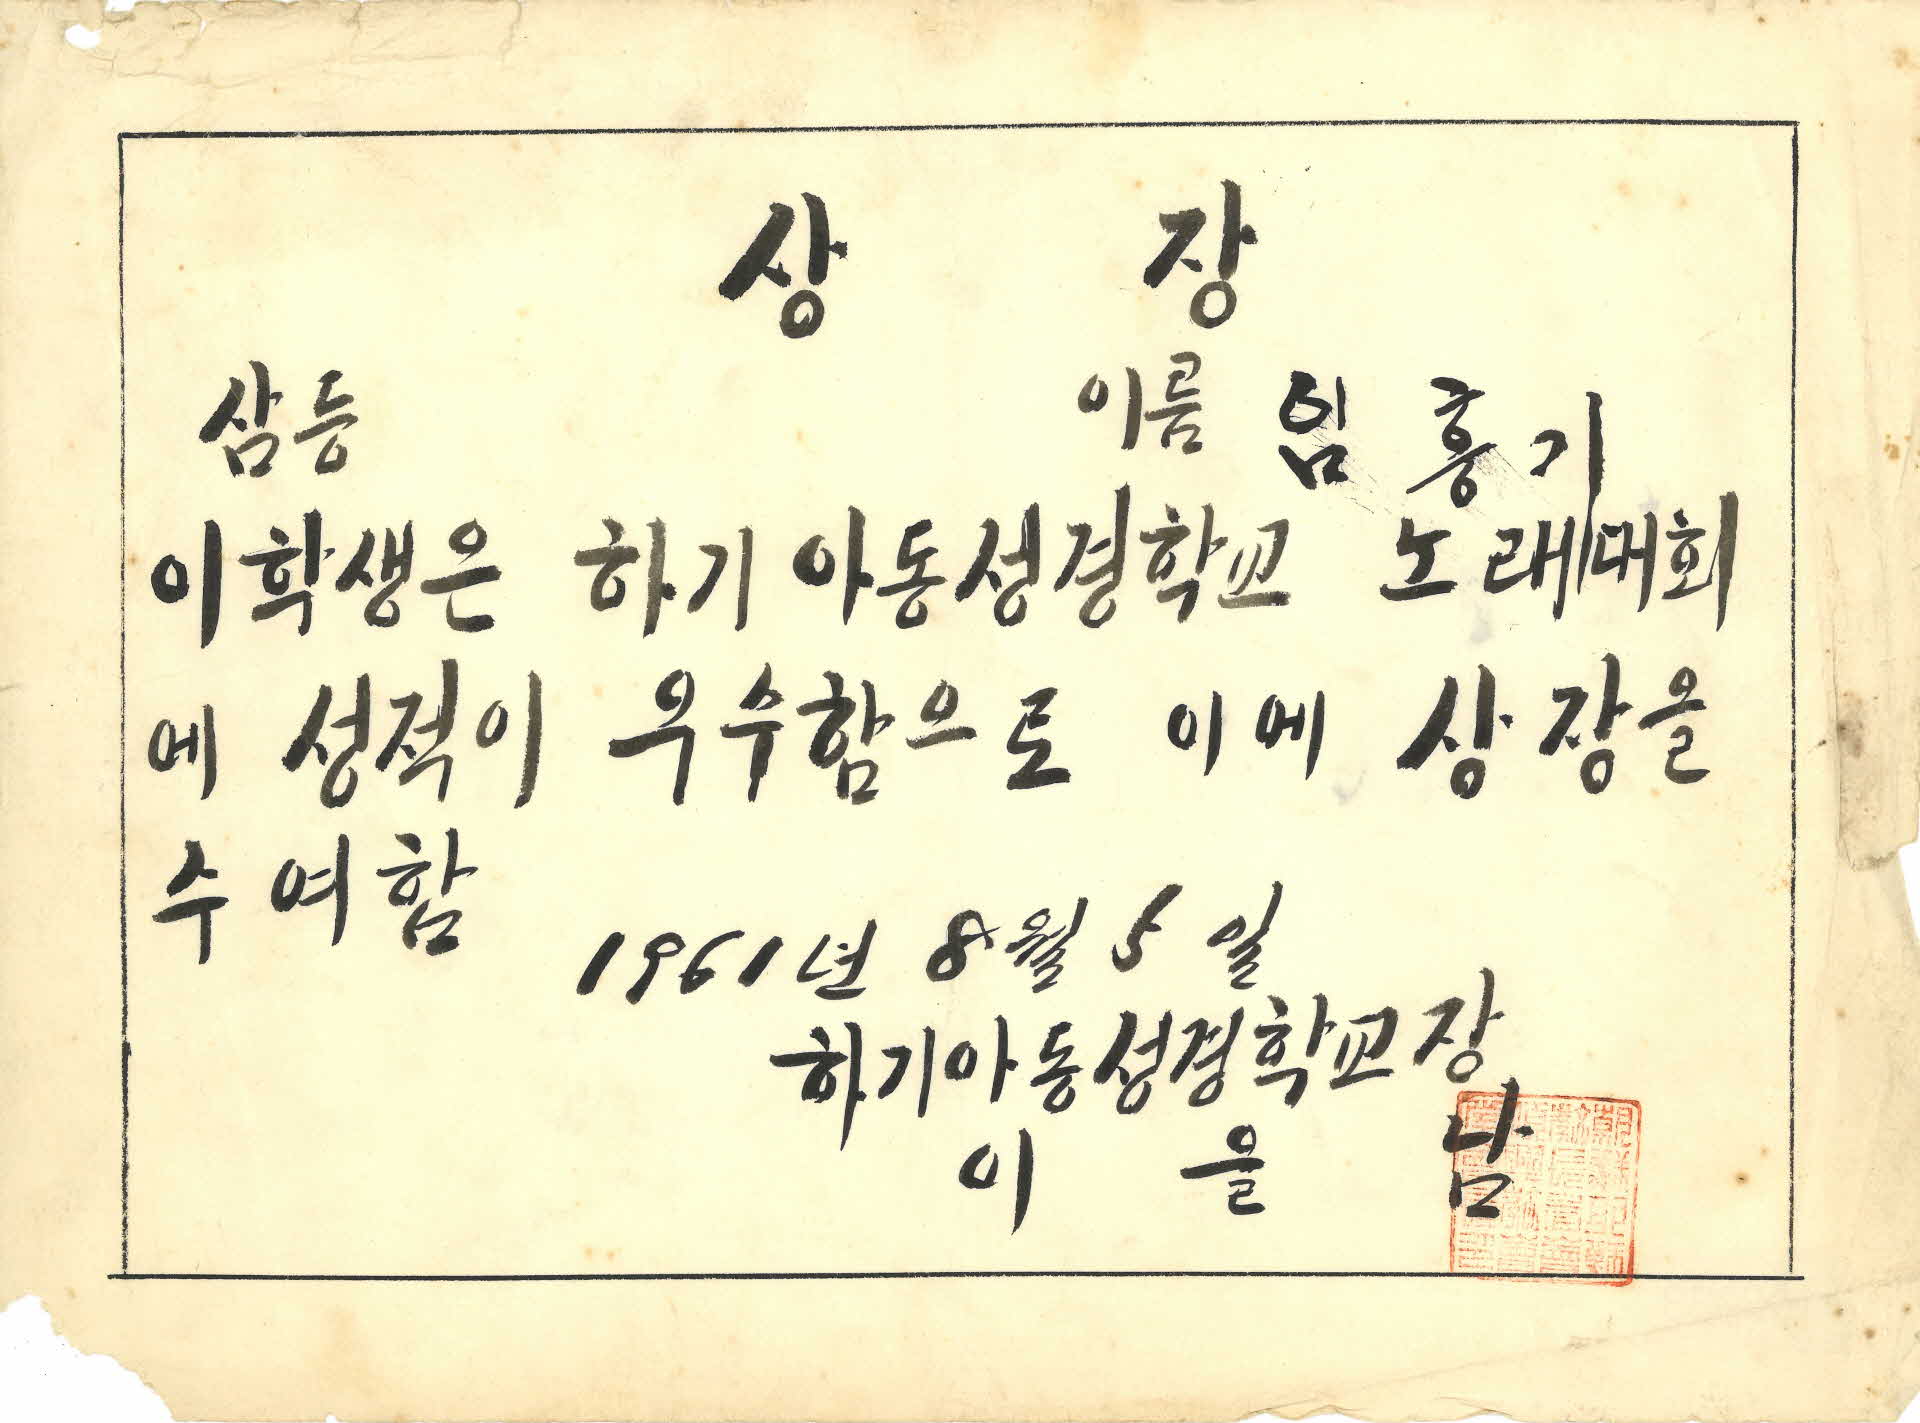 상 장
삼등 이름 임흥기
이학생은 하기 아동성경학교 노래대회
에 성적이 우수함으로 이에 상장을
수여함
1961년 8월 5일
하기아동성경학교장
이 을 남